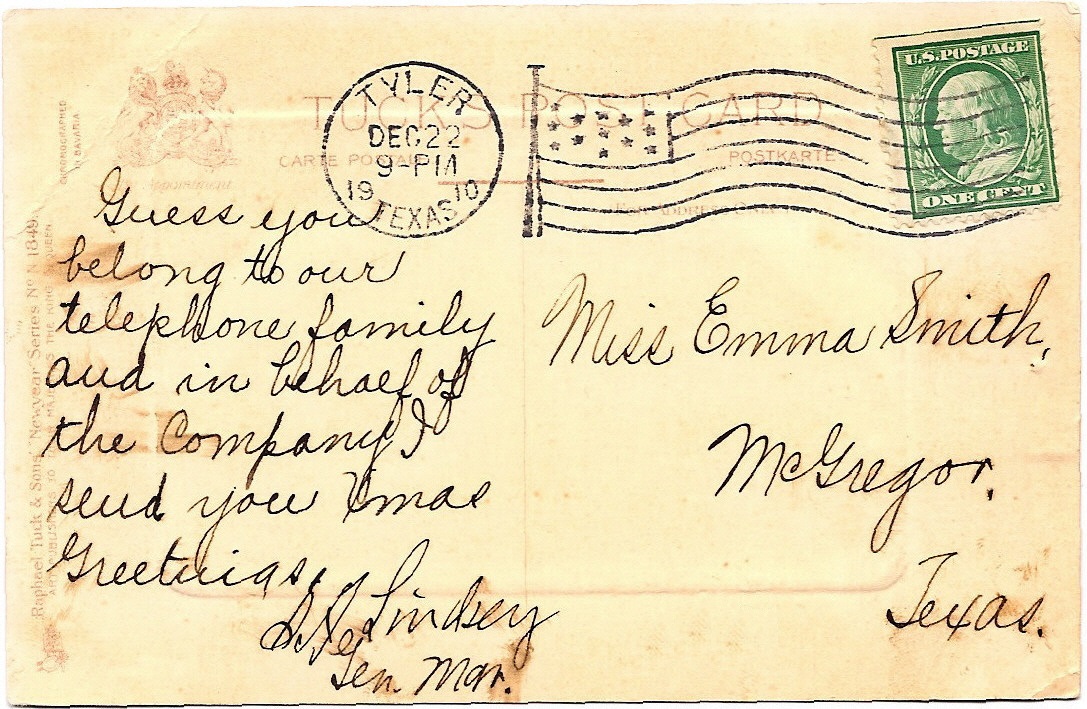 TUCK'S POST CARD
CARTE POSTALE
POSTKARTE
FOR ADDRESS ONLY
TYLER
DEC 22
9-PM
1910
TEXAS
U.S. POSTAGE
ONE CENT
CHROMOGRAPHED
IN BAVARIA
Raphael Tuck & Sons' "Newyear" Series No. N 1849.
ART PUBLISHERS TO MAJESTIES THE KING QUEEN
Guess you
belong to our
telephone family
and in behalf of
the Company I
send you Xmas
Greetings.
Lindsey
Gen. Mgr.
Miss Emma Smith,
McGregor,
Texas.